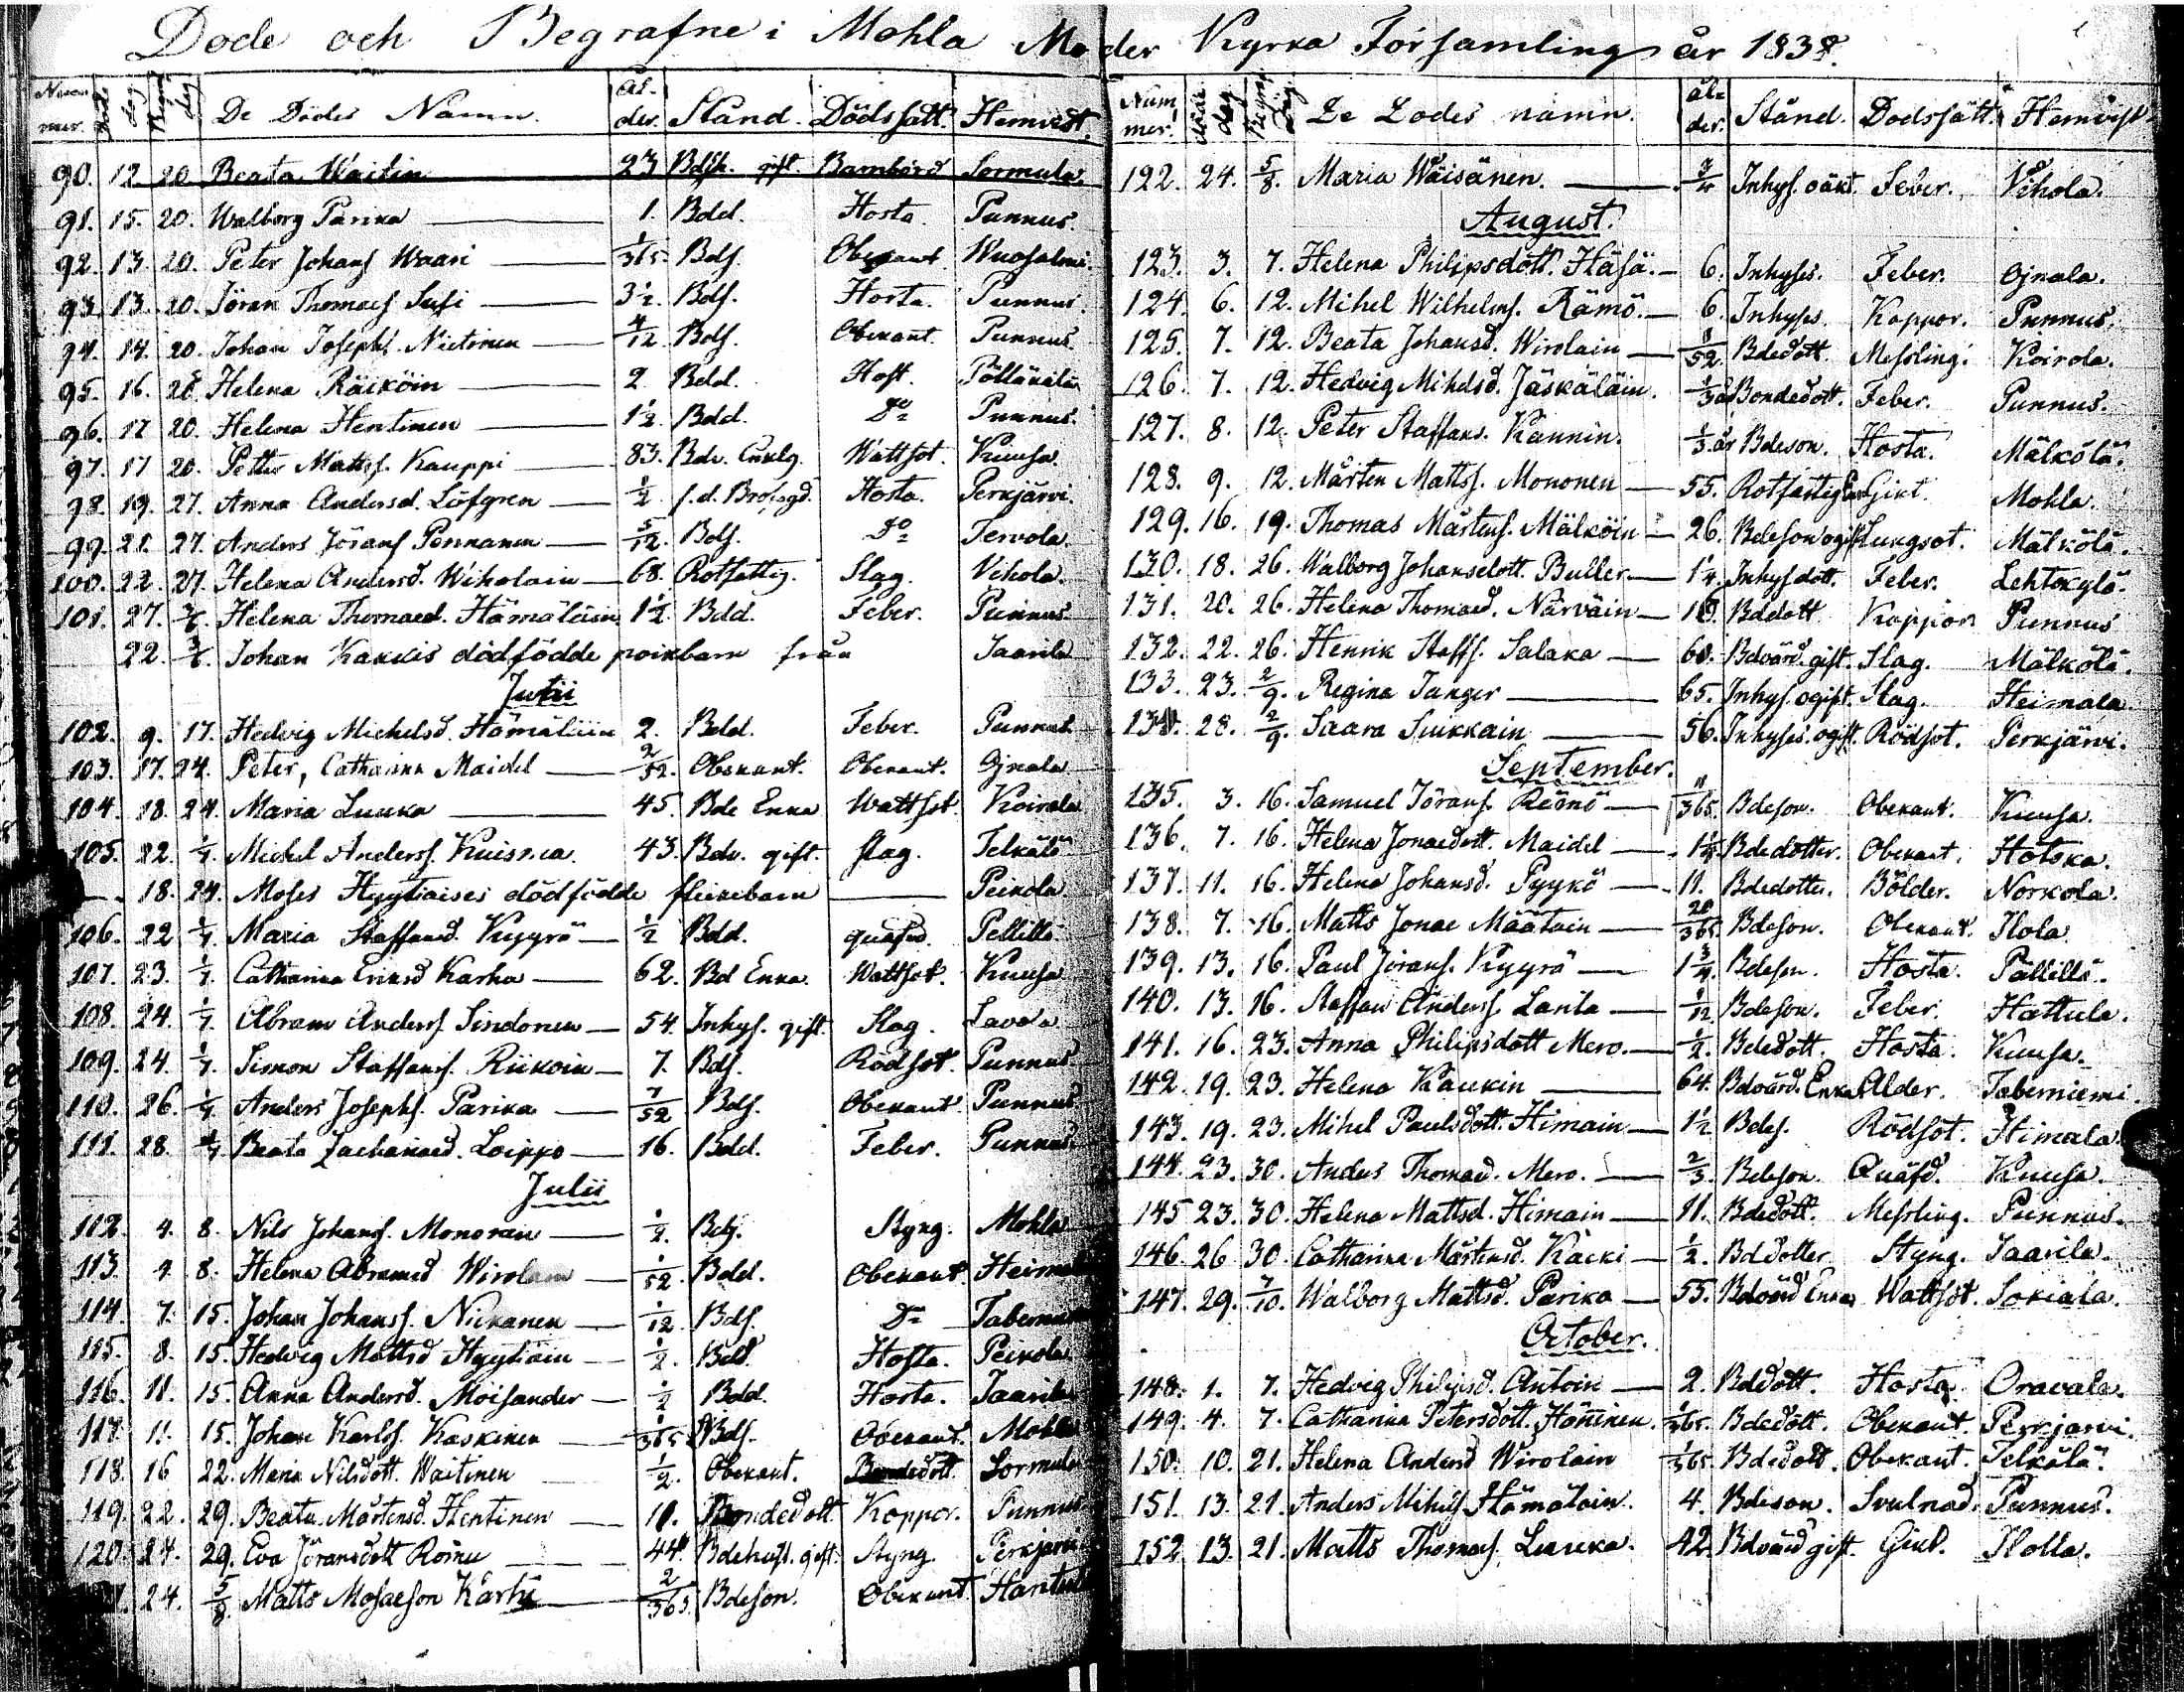 Döde och Begrafne i Mohla Moder Kyrka Församling år 1838.
Num mer. Döde dag Begraf dag De Dödes Namn. Ål- der. Stånd. Dödssätt. Hemvist.
90. 12. 20. Beata Waitin 23 Bdsh. gift. Barnbörd Sormula.
91. 15. 20. Walborg Parika 1. Bdd. Hosta. Punnus.
92. 13. 20. Peter Johans Waari 1/365 Bds. Obekant Wuosalmi.
93. 13. 20. Jöran Thomass Susi 3 1/2. Bds. Hosta. Punnus.
94. 14. 20. Johan Josephs. Nietonen 4/12 Bds. Obekant. Punnus.
95. 16. 20. Helena Räiköin 2. Bdd. Host. Pölläkälä
96. 17 20. Helena Hentinen 1 1/2. Bdd. Do Punnus.
97. 17 20. Petter Matss. Kauppi 83. Bdv. Enklg. Wattsot. Kuusa.
98. 19. 27. Anna Andersd. Löfgren 1/2 Hosta. Perkjärvi.
99. 21. 27. Anders Jörans Pennanen 5/12. Bds. Do Tervola.
100. 22. 27. Helena Andersd. Wiholain 68. Rotfattig. Slag. Vihola.
101. 27. Helena Thomaed. Hämäläin 1 1/2. Bdd. Feber. Punnus.
22. Johan Kakkis dödfödde poikbarn från Jaarila
Julii
102. 9. 17. Hedvig Michelsd. Hämäläin 2. Bdd. Feber. Punnus.
103. 17. 24. Peter, Catharina Maidel 2/52. Obekant. Obekant. Ojnala
104. 18. 24. Maria Luuka 45. Bde Enka Wattsot. Koirola
105. 22. 1/7. Michel Anderss. Kuisma 43. Bdv. gift. slag. Telkälä
18. 24. Moses Hyytiaises dödfödde flickebarn Peikola
106. 22 1/7. Maria Staffansd. Kyyrö 1/2 Bdd. quäfd. Pellillä
107. 23. 1/7. Catharina Eriksd Karha 62. Bd Enka. Wattsot. Kuusa
108. 24. 1/7. Abram Anderss Sindonen 54. Inhys. gift Slag.
109. 24. 1/7. Simon Staffans. Riikoin 7. Bds. Rödsot. Punnus
110. 26. 1/7. Anders Josephs. Parika 7/52 Bds. Obekant. Punnus
111. 28. Beata Zachariaed. Loippo 16. Bdd. Feber. Punnus
Julii
112. 4. 8. Nils Johans. Monoran 1/2. Bds. Styng. Mohla
113. 4. 8. Helena Abramsd Wirolain 1/52. Bdd. Obekant.
114. 7. 15. Johan Johanss. Nikanen 1/12. Bds. Do
115. 8. 15. Hedvig Mattsd Hyytiäin 1/2. Bdd. Hosta. Peikola
116. 11. 15. Anna Andersd. Moisander 1/2 Bdd. Hosta. Jaarila
117. 11. 15. Johan Karls. Kaskinen 1/365 Bds. Obekant. Mohla
118. 16 22. Maria Nilsdott. Waitinen 1/2. Obekant. Bondedott. Sormula
119. 22. 29. Beata Mårtensd. Hentinen 11. Bondedott. Koppor. Punnus
120. 24. 29. Eva Jöransdott Roinu 44. Bdehust. gift. Styng. Perkjärvi
24. 5/8. Matts Mosaeson Karhi 2/365. Bdeson. Obekant
Num mer. Döde dag Begraf dag De Dödes namn. ål- der. Stånd. Dödssätt. Hemvist
122. 24. 5/8. Maria Wäisänen. 3/4 Inhys. oäkt. Feber. Vihola.
August.
123. 3. 7. Helena Philipsdott. Häsä. 6. Inhyses. Feber. Ojnala.
124. 6. 12. Mihel Wilhelms. Rämö. 6. Inhyses. Koppor. Punnus.
125. 7. 12. Beata Johansd. Wirolain 8/52. Bdedott. Messling. Koirola.
126. 7. 12. Hedvig Mihelsd. Jäskäläin. 1/3 år Bondedott. Feber. Punnus.
127. 8. 12. Peter Staffans. Kannin. 1/3 år Bdeson. Hosta. Mälkölä.
128. 9. 12. Mårten Mattss. Mononen 55. Rotfattig Gikt. Mohla.
129. 16. 19. Thomas Mårtens. Mälköin 26. Bdeson ogift Lungsot. Mälkölä.
130. 18. 26. Walborg Johansdott. Buller 1 1/4. Inhysdott. Feber. Lehtokylä.
131. 20. 26. Helena Thomaed. Närväin 10. Bddott Koppor Punnus
132. 22. 26. Henrik Staffs. Salaka 60. Bdvärd. gift. Slag. Mälkölä.
133. 23. 2/9. Regina Tanger 65. Inhys. ogift. Slag. Heimala.
134. 28. 2/9. Saara Suikkain 56. Inhyses. ogift. Rödsot. Perkjärvi.
September.
135. 3. 16. Samuel Jörans. Reönö 11/365. Bdeson. Obekant. Kuusa.
136. 7. 16. Helena Jonaedott. Maidel 1 1/2. Bdedotter. Obekant. Hotska.
137. 11. 16. Helena Johansd. Pyykö 11. Bdedotter. Bölder. Norkola.
138. 7. 16. Matts Jonae Määtäin 20/365 Bdeson. Obekant. Ilola.
139. 13. 16. Paul Jörans. Kyyrö 1 3/4. Bdeson. Hosta. Pällilä.
140. 13. 16. Staffan Anderss. Lanla 1/12 Bdeson. Feber. Hattula.
141. 16. 23. Anna Philipsdott Mero. 1/2. Bdedott. Hosta. Kuusa.
142. 19. 23. Helena Kaukin 64. Bdvärd. Enka Ålder. Taberniemi.
143. 19. 23. Mihel Paulsdott. Himain 1 1/2 Bdes. Rödsot. Himala.
144. 23. 30. Anders Thomad. Mero. 2/3. Bdeson. Quäfd. Kuusa.
145 23. 30. Helena Mattsd. Himain 11. Bdedott. Messling. Punnus.
146. 26 30. Catharina Mårtensd. Käcki 1/2. Bddotter Styng. Jaarila.
147. 29. 7/10. Walborg Mattsd. Parika 55. Bdvärd Enka Wattsot. Sokiala.
October.
148. 1. 7. Hedvig Philipsd. Antoin 2. Bddott. Hosta. Oravala.
149. 4. 7. Catharina Petersdott. Hänninen. 1/365. Bdedott. Obekant. Perkjarvi.
150. 10. 21. Helena Andersd Wirolain 1/365. Bdedott. Obekant. Telkälä.
151. 13. 21. Anders Mihels Hämäläin. 4. Bdeson. Svulnad. Punnus.
152 13. 21. Matts Thomas. Luuka. 42 Bdvärd gift. Ilolla.